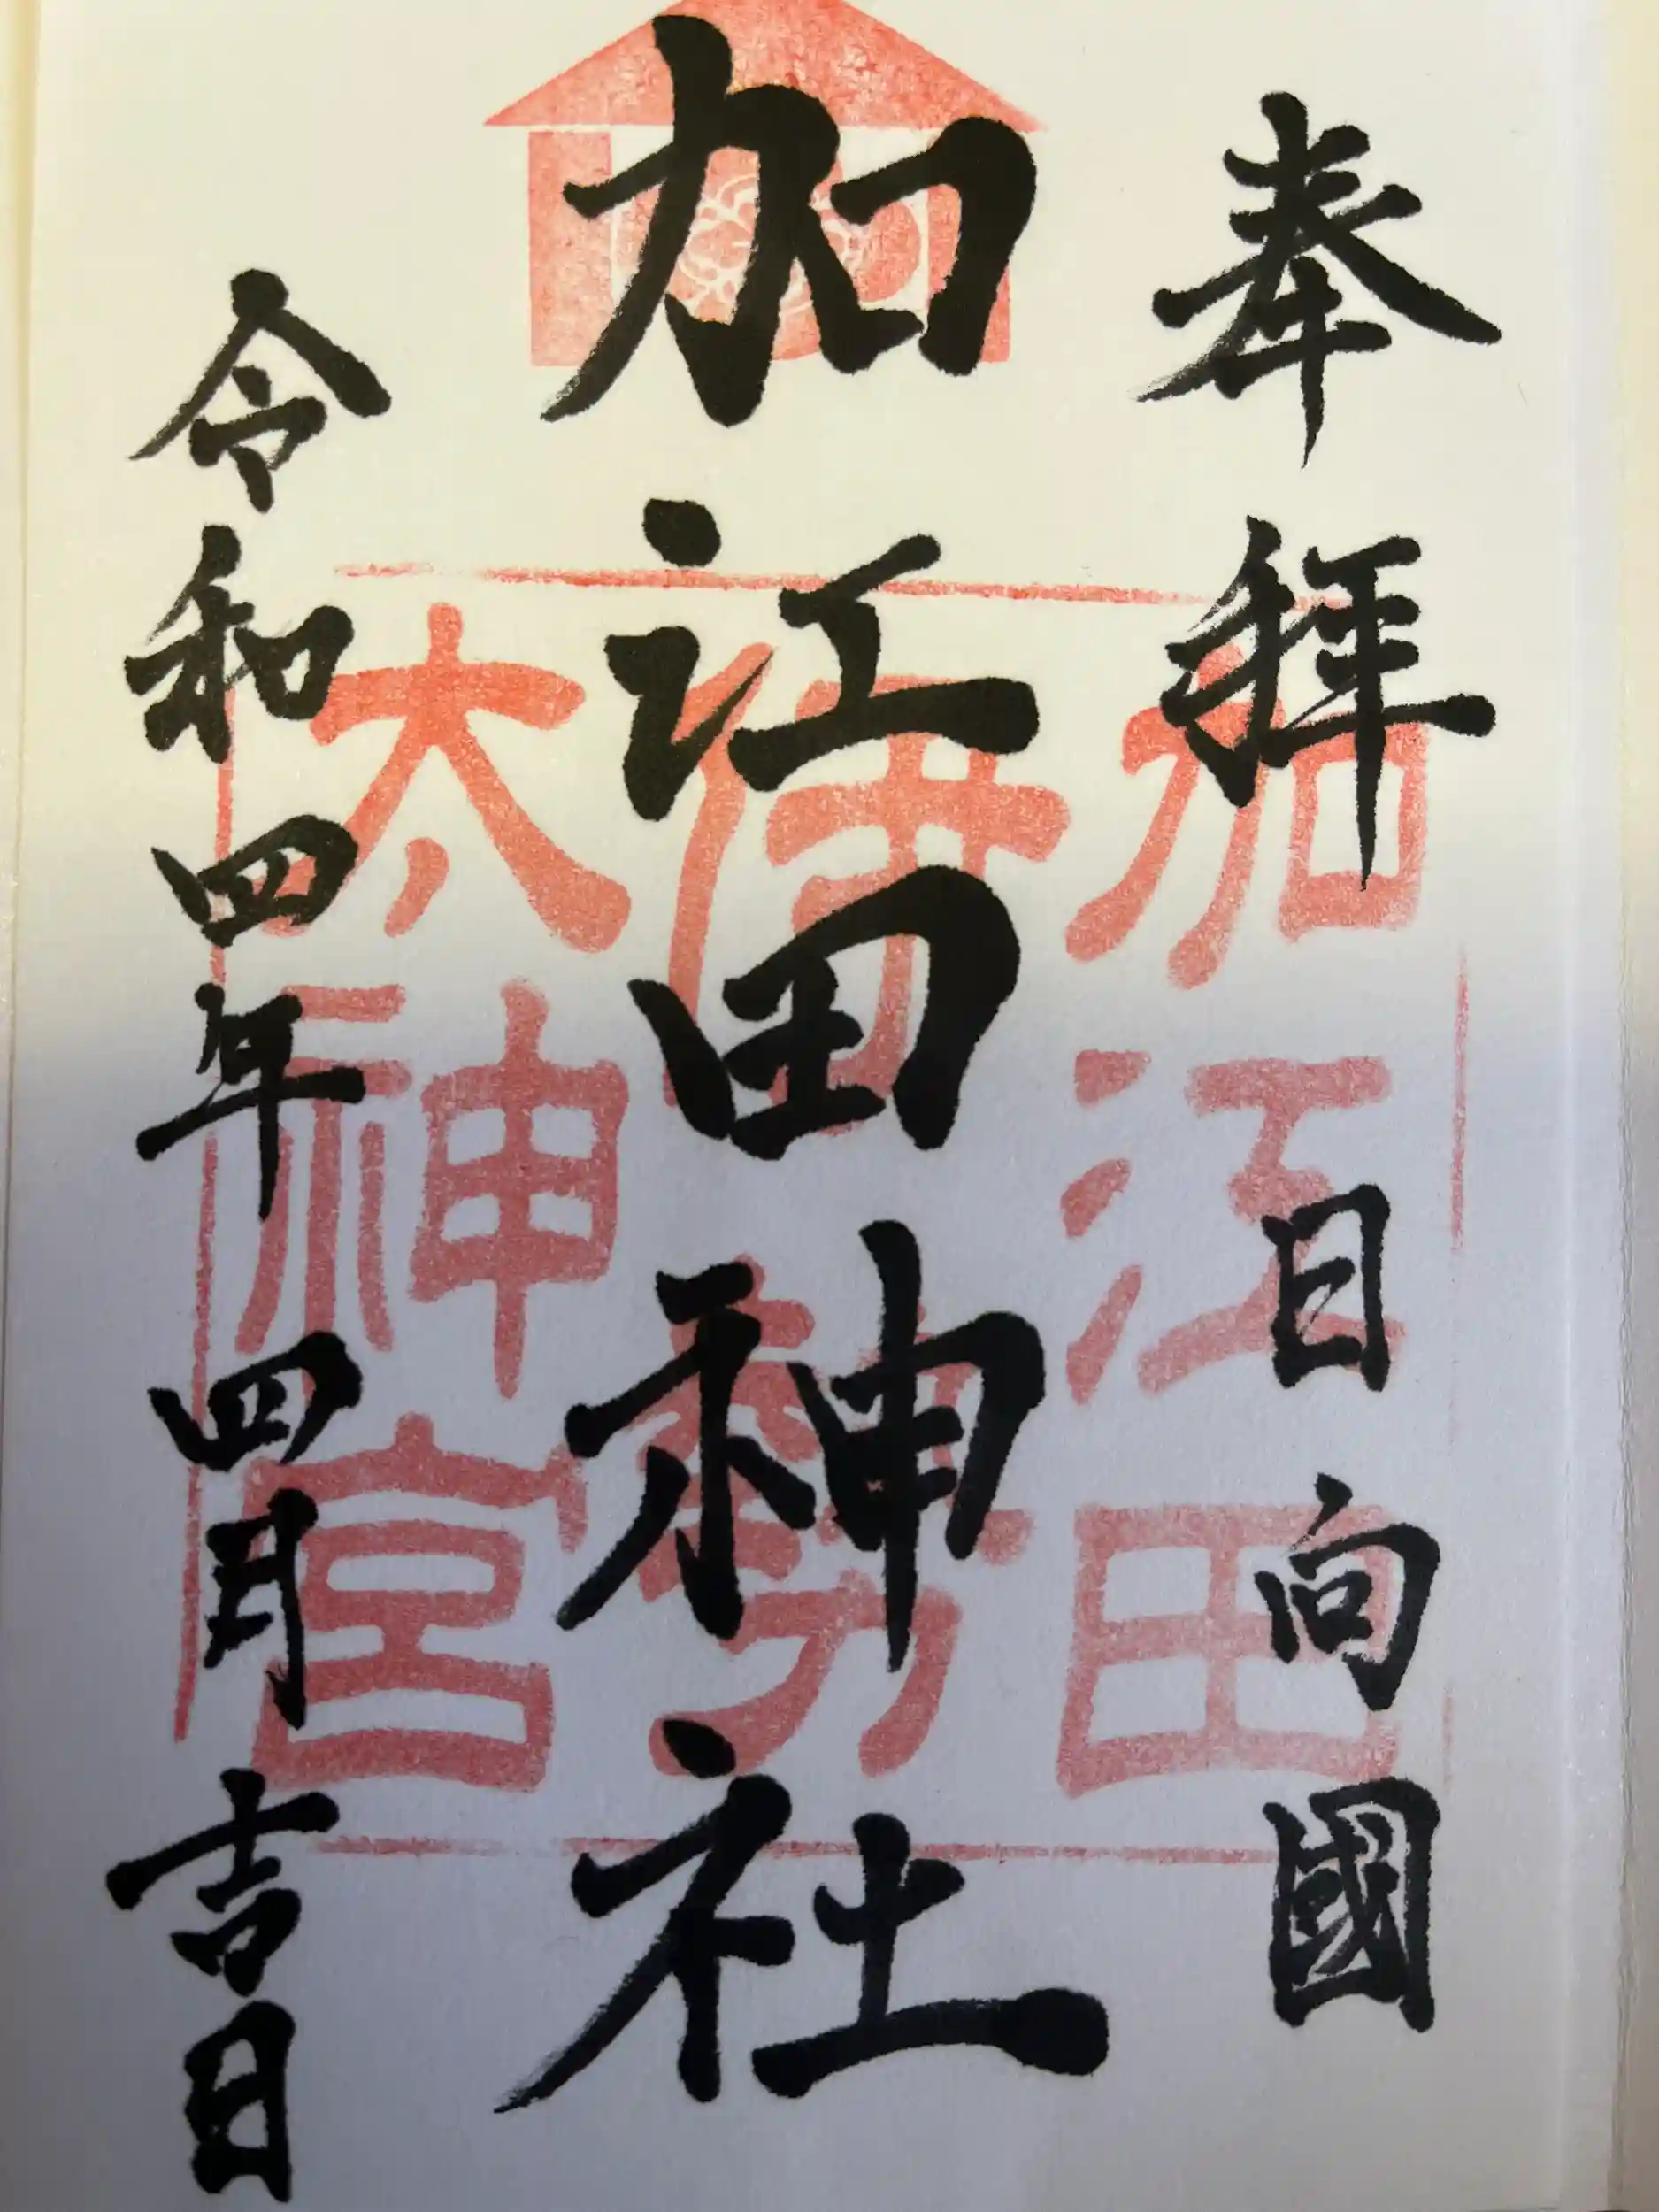 奉拝 日向國
加江田神社
令和四年 四月 吉日
加江田
伊勢
太神宮